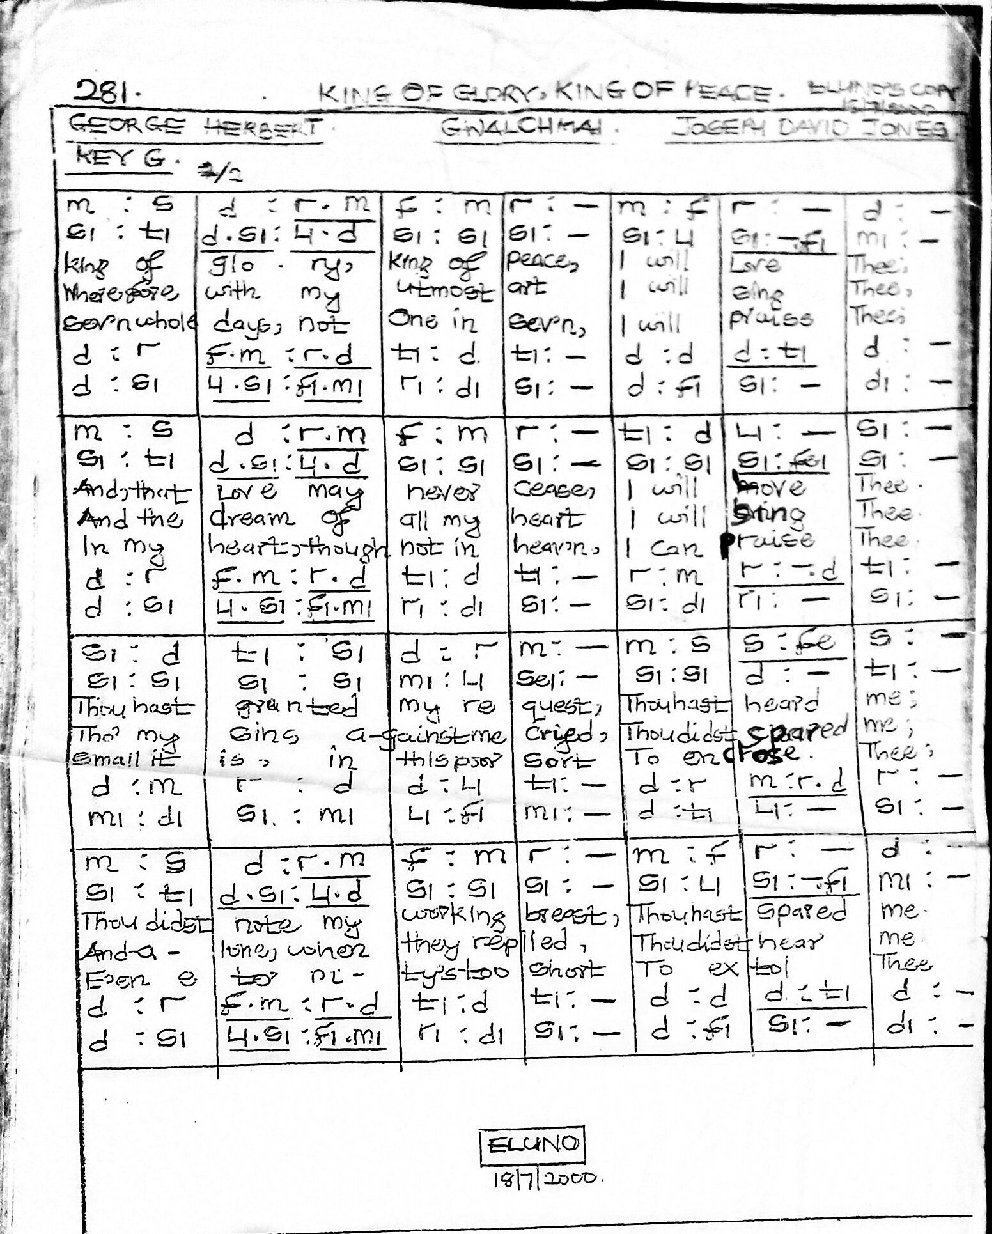 281. KING OF GLORY, KING OF PEACE. ELUNO'S COPY
18/7/2000
GEORGE HERBERT. GWALCHMAI. JOSEPH DAVID JONES
KEY G. 2/2
m : s d : r.m f : m r : — m : f r : — d : —
s1 : t1 d.s1 : l1.d s1 : s1 s1 : — s1 : l1 s1 : -.f1 m1 : —
King of glo - ry, King of peace, I will Love Thee;
Wherefore, with my utmost art I will sing Thee,
Sev'n whole days, not One in sev'n, I will praise Thee;
d : r f.m : r.d t1 : d t1 : — d : d d : t1 d : —
d : s1 l1.s1 : f1.m1 r1 : d1 s1 : — d : f1 s1 : — d1 : —
m : s d : r.m f : m r : — t1 : d l1 : — s1 : —
s1 : t1 d.s1 : l1.d s1 : s1 s1 : — s1 : s1 s1 : fe1 s1 : —
And, that Love may never cease, I will move Thee.
And the cream of all my heart I will bring Thee.
In my heart, though not in heav'n, I can praise Thee.
d : r f.m : r.d t1 : d t1 : — r : m r : -.d t1 : —
d : s1 l1.s1 : f1.m1 r1 : d1 s1 : — s1 : d1 r1 : — s1 : —
s1 : d t1 : s1 d : r m : — m : s s : fe s : —
s1 : s1 s1 : s1 m1 : l1 se1 : — s1 : s1 d : — t1 : —
Thou hast granted my re quest, Thou hast heard me;
Tho' my sins a-gainst me cried, Thou didst spared me;
small it is, in this poor sort To en close Thee;
d : m r : d d : l1 t1 : — d : r m : r.d r : —
m1 : d1 s1 : m1 l1 : f1 m1 : — d : t1 l1 : — s1 : —
m : s d : r.m f : m r : — m : f r : — d : —
s1 : t1 d.s1 : l1.d s1 : s1 s1 : — s1 : l1 s1 : -.f1 m1 : —
Thou didst note my working breast, Thou hast spared me.
And a - lone, when they rep lied, Thou didst hear me.
Even e ter ni - ty's too short To ex tol Thee
d : r f.m : r.d t1 : d t1 : — d : d d : t1 d : —
d : s1 l1.s1 : f1.m1 r1 : d1 s1 : — d : f1 s1 : — d1 : —
ELUNO
18/7/2000.